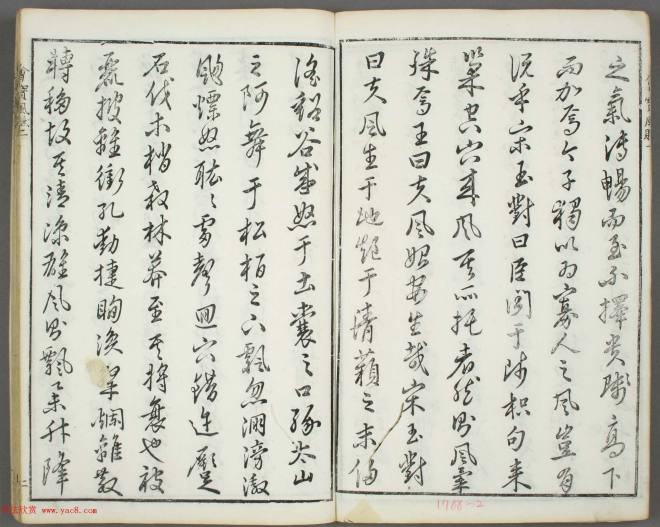 之氣溥暢而至不擇貴賤高下
而加焉今子獨以為寡人之風豈有
說乎宋玉對曰臣聞于師枳句来
巢空穴来風其所托者然則風氣
殊焉王曰夫風始安生哉宋玉對
曰夫風生于地起于清蘋之末侵
淫谿谷盛怒于土囊之口緣太山
之阿舞于松柏之下飄忽淜滂激
颺熛怒耾〻雷聲迴穴錯迕蹷
石伐木梢殺林莽至其將衰也被
麗披離衝孔動楗眴渙粲爛離散
轉移故其清凉雄風則飄舉升降
书法欣赏
www.yac8.com